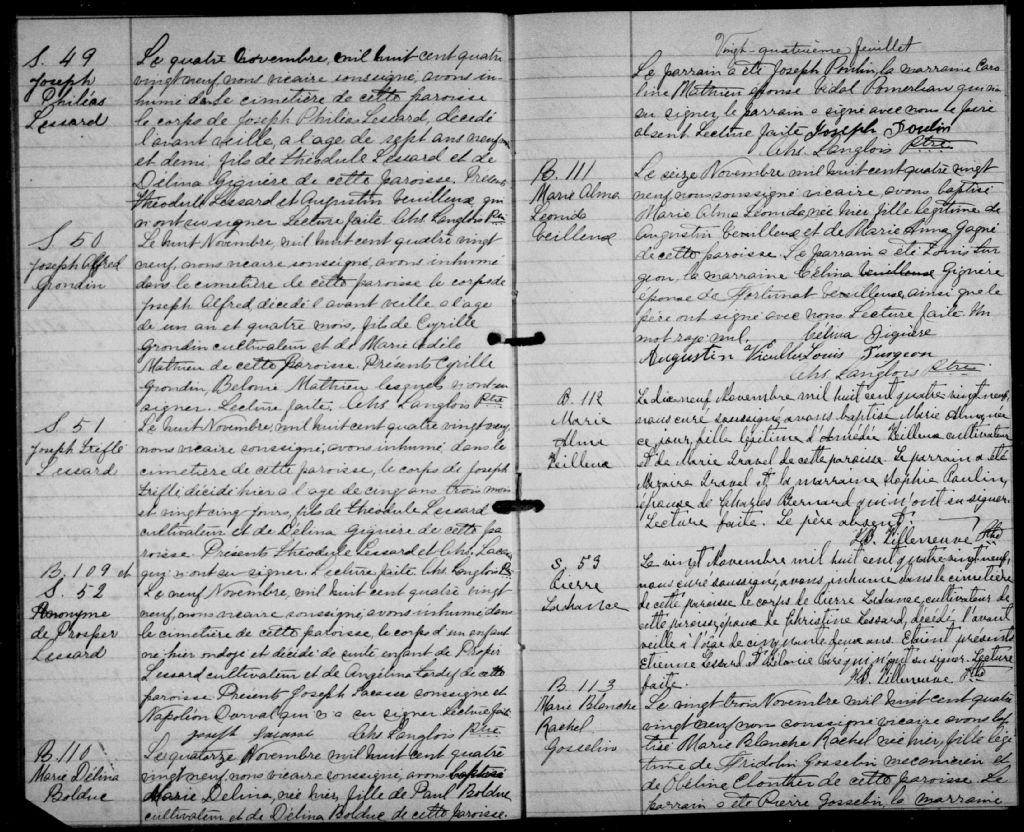 S. 49
Joseph
Philéas
Lessard
Le quatre novembre, mil huit cent quatre
vingt neuf nous vicaire soussigné, avons in-
humé dans le cimetière de cette paroisse
le corps de Joseph Philéas Lessard, décédé
l'avant veille, à l'age de sept ans neuf mois
et demi, fils de Théodule Lessard et de
Délina Giguère de cette paroisse. Présents
Théodule Lessard et Augustin Veilleux qui
n'ont su signer Lecture faite Chs. Langlois Ptre
S. 50
Joseph Alfred
Grondin
Le huit Novembre, mil huit cent quatre vingt
neuf, nous vicaire soussigné, avons inhumé
dans le cimetière de cette paroisse le corps de
Joseph Alfred, décédé l'avant veille à l'age
de un an et quatre mois, fils de Cyrille
Grondin cultivateur et de Marie Adèle
Mathieu de cette paroisse. Présents Cyrille
Grondin, Belonie Mathieu lesquels n'ont su
signer. Lecture faite. Chs. Langlois Ptre
S. 51
Joseph Trefflé
Lessard
Le huit Novembre, mil huit cent quatre vingt neuf,
nous vicaire soussigné, avons inhumé dans le
cimetière de cette paroisse, le corps de Joseph
Trefflé décédé hier à l'age de cinq ans trois mois
et vingt cinq jours, fils de Théodule Lessard
cultivateur et de Délina Giguère de cette pa
roisse. Présents Théodule Lessard et Chs. Lacasse
qui n'ont su signer. Lecture faite. Chs. Langlois Ptre
B. 109 et
S. 52
Anonyme
de Prosper
Lessard
Le neuf Novembre, mil huit cent quatre vingt
neuf, nous vicaire soussigné avons inhumé dans
le cimetière de cette paroisse, le corps d'un enfant
né hier ondoyé et décédé de suite enfant de Prosper
Lessard cultivateur et de Angélina de cette
paroisse Présents Joseph Lacasse soussigné et
Napoléon Dorval qui n'a su signer Lecture faite
Joseph Chs Langlois Ptre
B. 110
Marie Délina
Bolduc
Le quatorze Novembre mil huit cent quatre
vingt neuf, nous vicaire soussigné, avons baptisé
Marie Délina, née hier, fille de Paul Bolduc
cultivateur et de Délina Bolduc de cette paroisse.
Vingt-quatrième feuillet
Le parrain a été Joseph Poulin, la marraine Caro
line Mathieu épouse Vidal Pomerleau qui n'a
su signer, le parrain a signé avec nous le père
absent Lecture faite Joseph Poulin
Chs. Langlois Ptre
B. 111
Marie Alma
Leonida
Veilleux
Le seize Novembre mil huit cent quatre vingt
neuf nous soussigné vicaire avons baptisé
Marie Alma Leonida, née hier, fille légitime de
Augustin Veilleux et de Marie Anna Gagné
de cette paroisse. Le parrain a été Louis Tur
geon, la marraine Célina Veilleux Giguère
épouse de Fortunat Veilleux, ainsi que le
père ont signé avec nous Lecture faite. Un
mot rayé nul. Célina Giguère
Augustin Veilleux Louis Turgeon
Chs. Langlois Ptre
B. 112
Marie
Alma
Veilleux
Le dix-neuf Novembre mil huit cent quatre-vingt-neuf,
nous curé soussigné, avons baptisé Marie Alma, née
ce jour, fille légitime d'Amédée Veilleux cultivateur
et de Marie Gravel de cette paroisse. Le parrain a été
Nazaire Gravel et la marraine Sophie Poulin,
épouse de Charles Bernard qui n'ont su signer.
Lecture faite. Le père absent.
Villeneuve Ptre
S. 53
Pierre
Ladrance
Le vingt Novembre mil huit cent quatre-vingt-neuf,
nous curé soussigné, avons inhumé dans le cimetière
de cette paroisse le corps de Pierre cultivateur de
cette paroisse époux de Christine Lessard, décédé l'avant
veille à l'âge de cinquante deux ans. Etaient présents
Etienne Lessard et Belonie qui n'ont su signer. Lecture
faite. Villeneuve Ptre
B. 113
Marie Blanche
Rachel
Gosselin
Le vingt trois Novembre mil huit cent quatre
vingt neuf nous soussigné vicaire avons bap
tisé Marie Blanche Rachel née hier, fille légi
time de Fridolin Gosselin mécanicien et
de Héline Cloutier de cette paroisse. Le
parrain a été Pierre Gosselin, la marraine